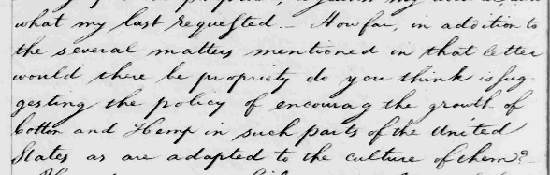 what my last requested – How far, in addition to
the several matters mentioned in that letter
would there be propriety do you think in sug-
gesting the policy of encourag the growth of
Cotton and Hemp in such parts of the United
States as are adapted to the culture of them?